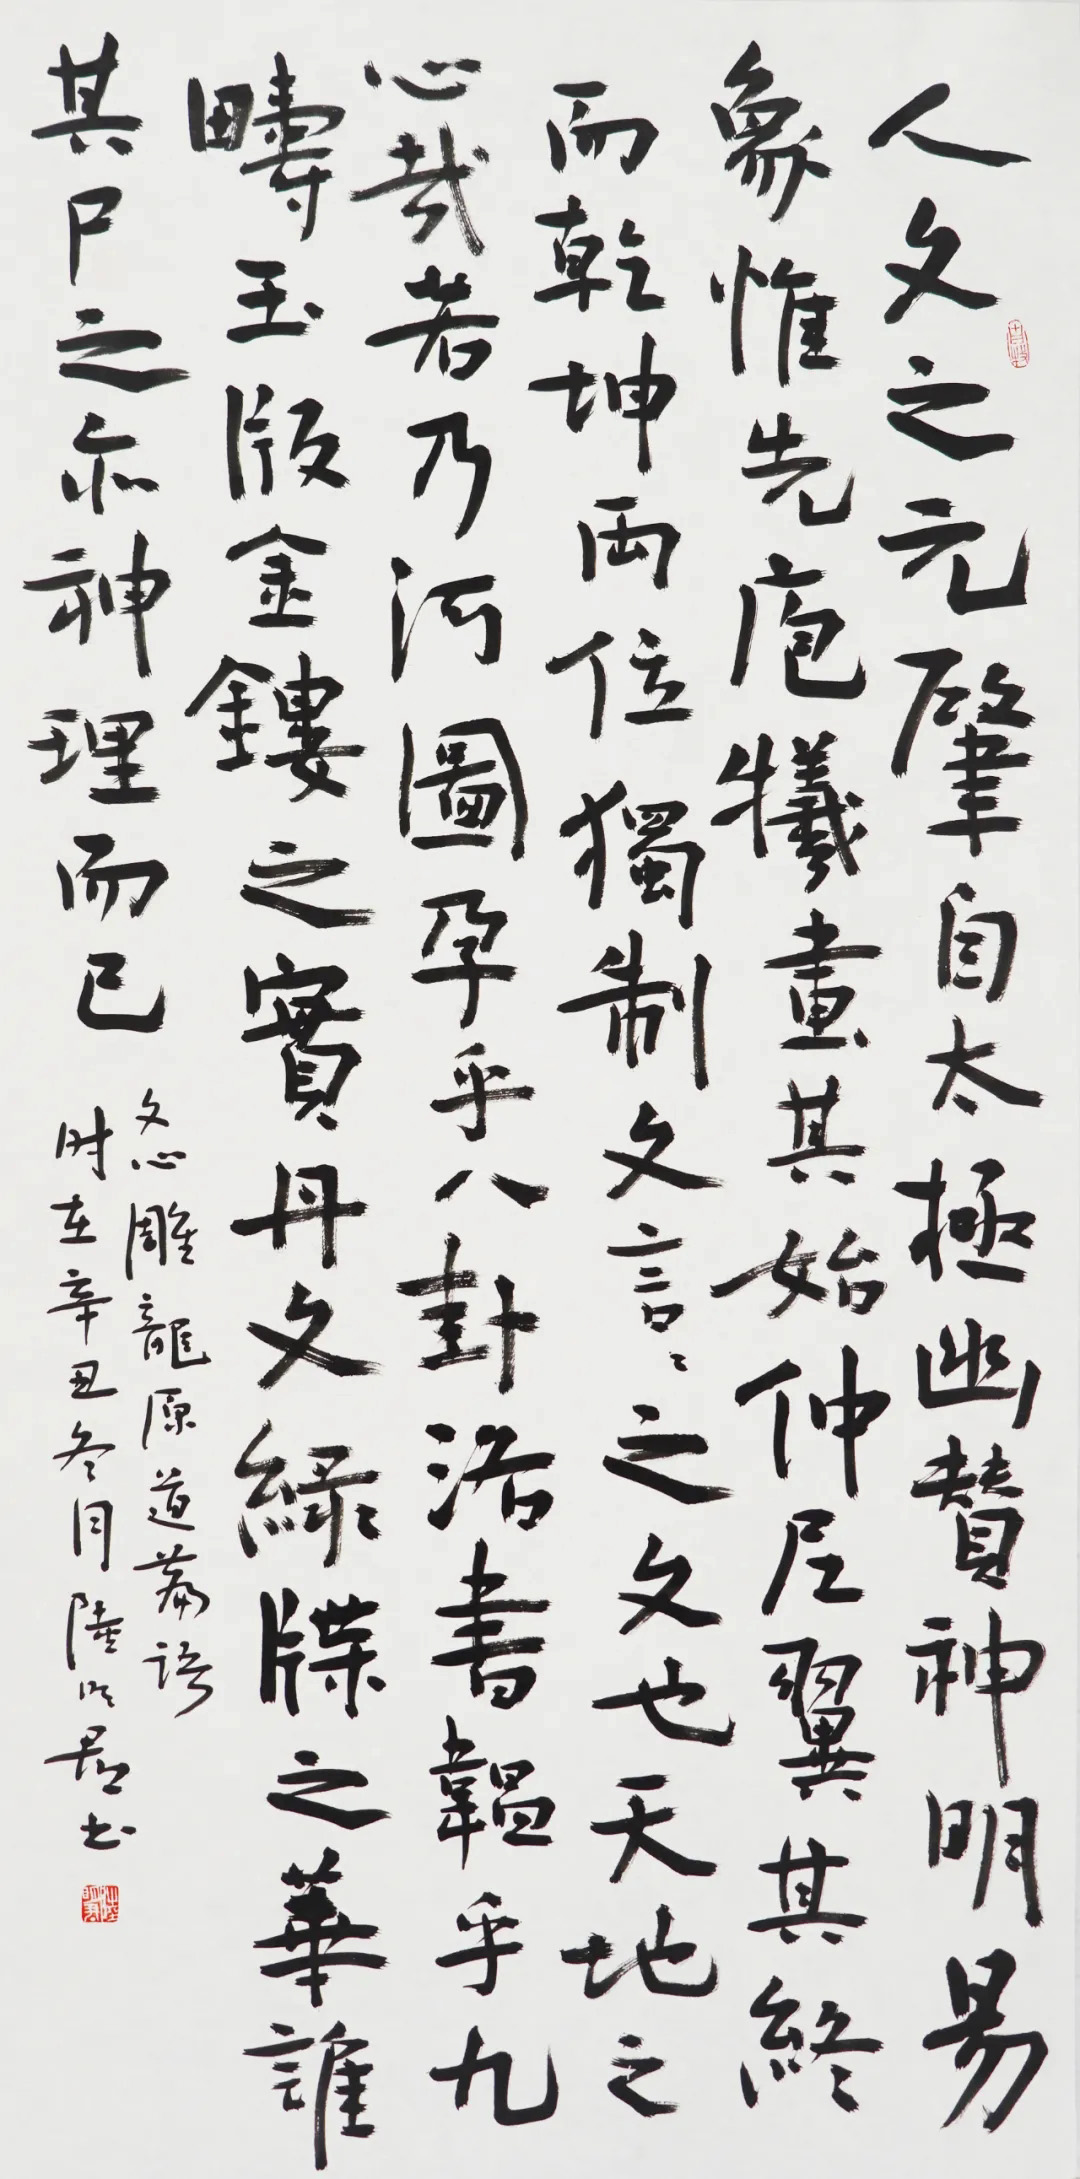 人文之元肇自太極幽贊神明易
象惟先庖犧畫其始仲尼翼其終
而乾坤兩位獨制文言言之文也天地之
心哉若乃河圖孕乎八卦洛書韞乎九
疇玉版金鏤之實丹文綠牒之華誰
其尸之亦神理而已
文心雕龍原道篇語
时在辛丑冬月陸明君书